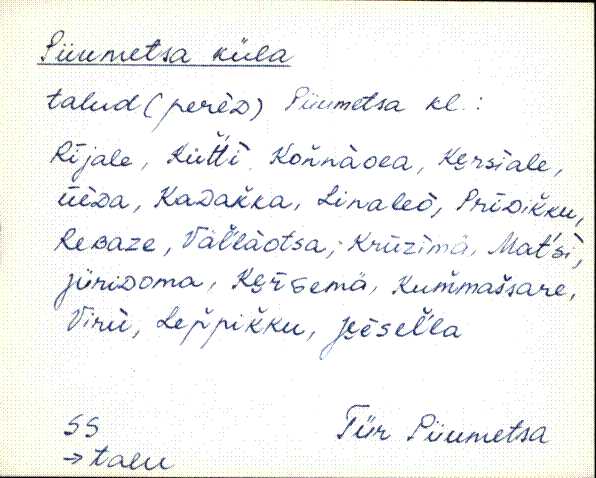 Piiumetsa küla
talud (perèD) Piiumetsa kl.:
Rījale, Küt̆t̆i, Kon̆nàoea, Kȩrsīale,
üèDa, Kadak̆ka, Linaleò, PrīDik̆ku,
ReBaze, Väl̆làotsa, Krūzīmä, Mat́si,
jüriDoma, Kȩ̄rɢemä, Kum̆mas̆sare,
Virū, Lep̆pik̆ku, jȩ̄èsel̆la
SS
→ talu
Tür Piiumetsa